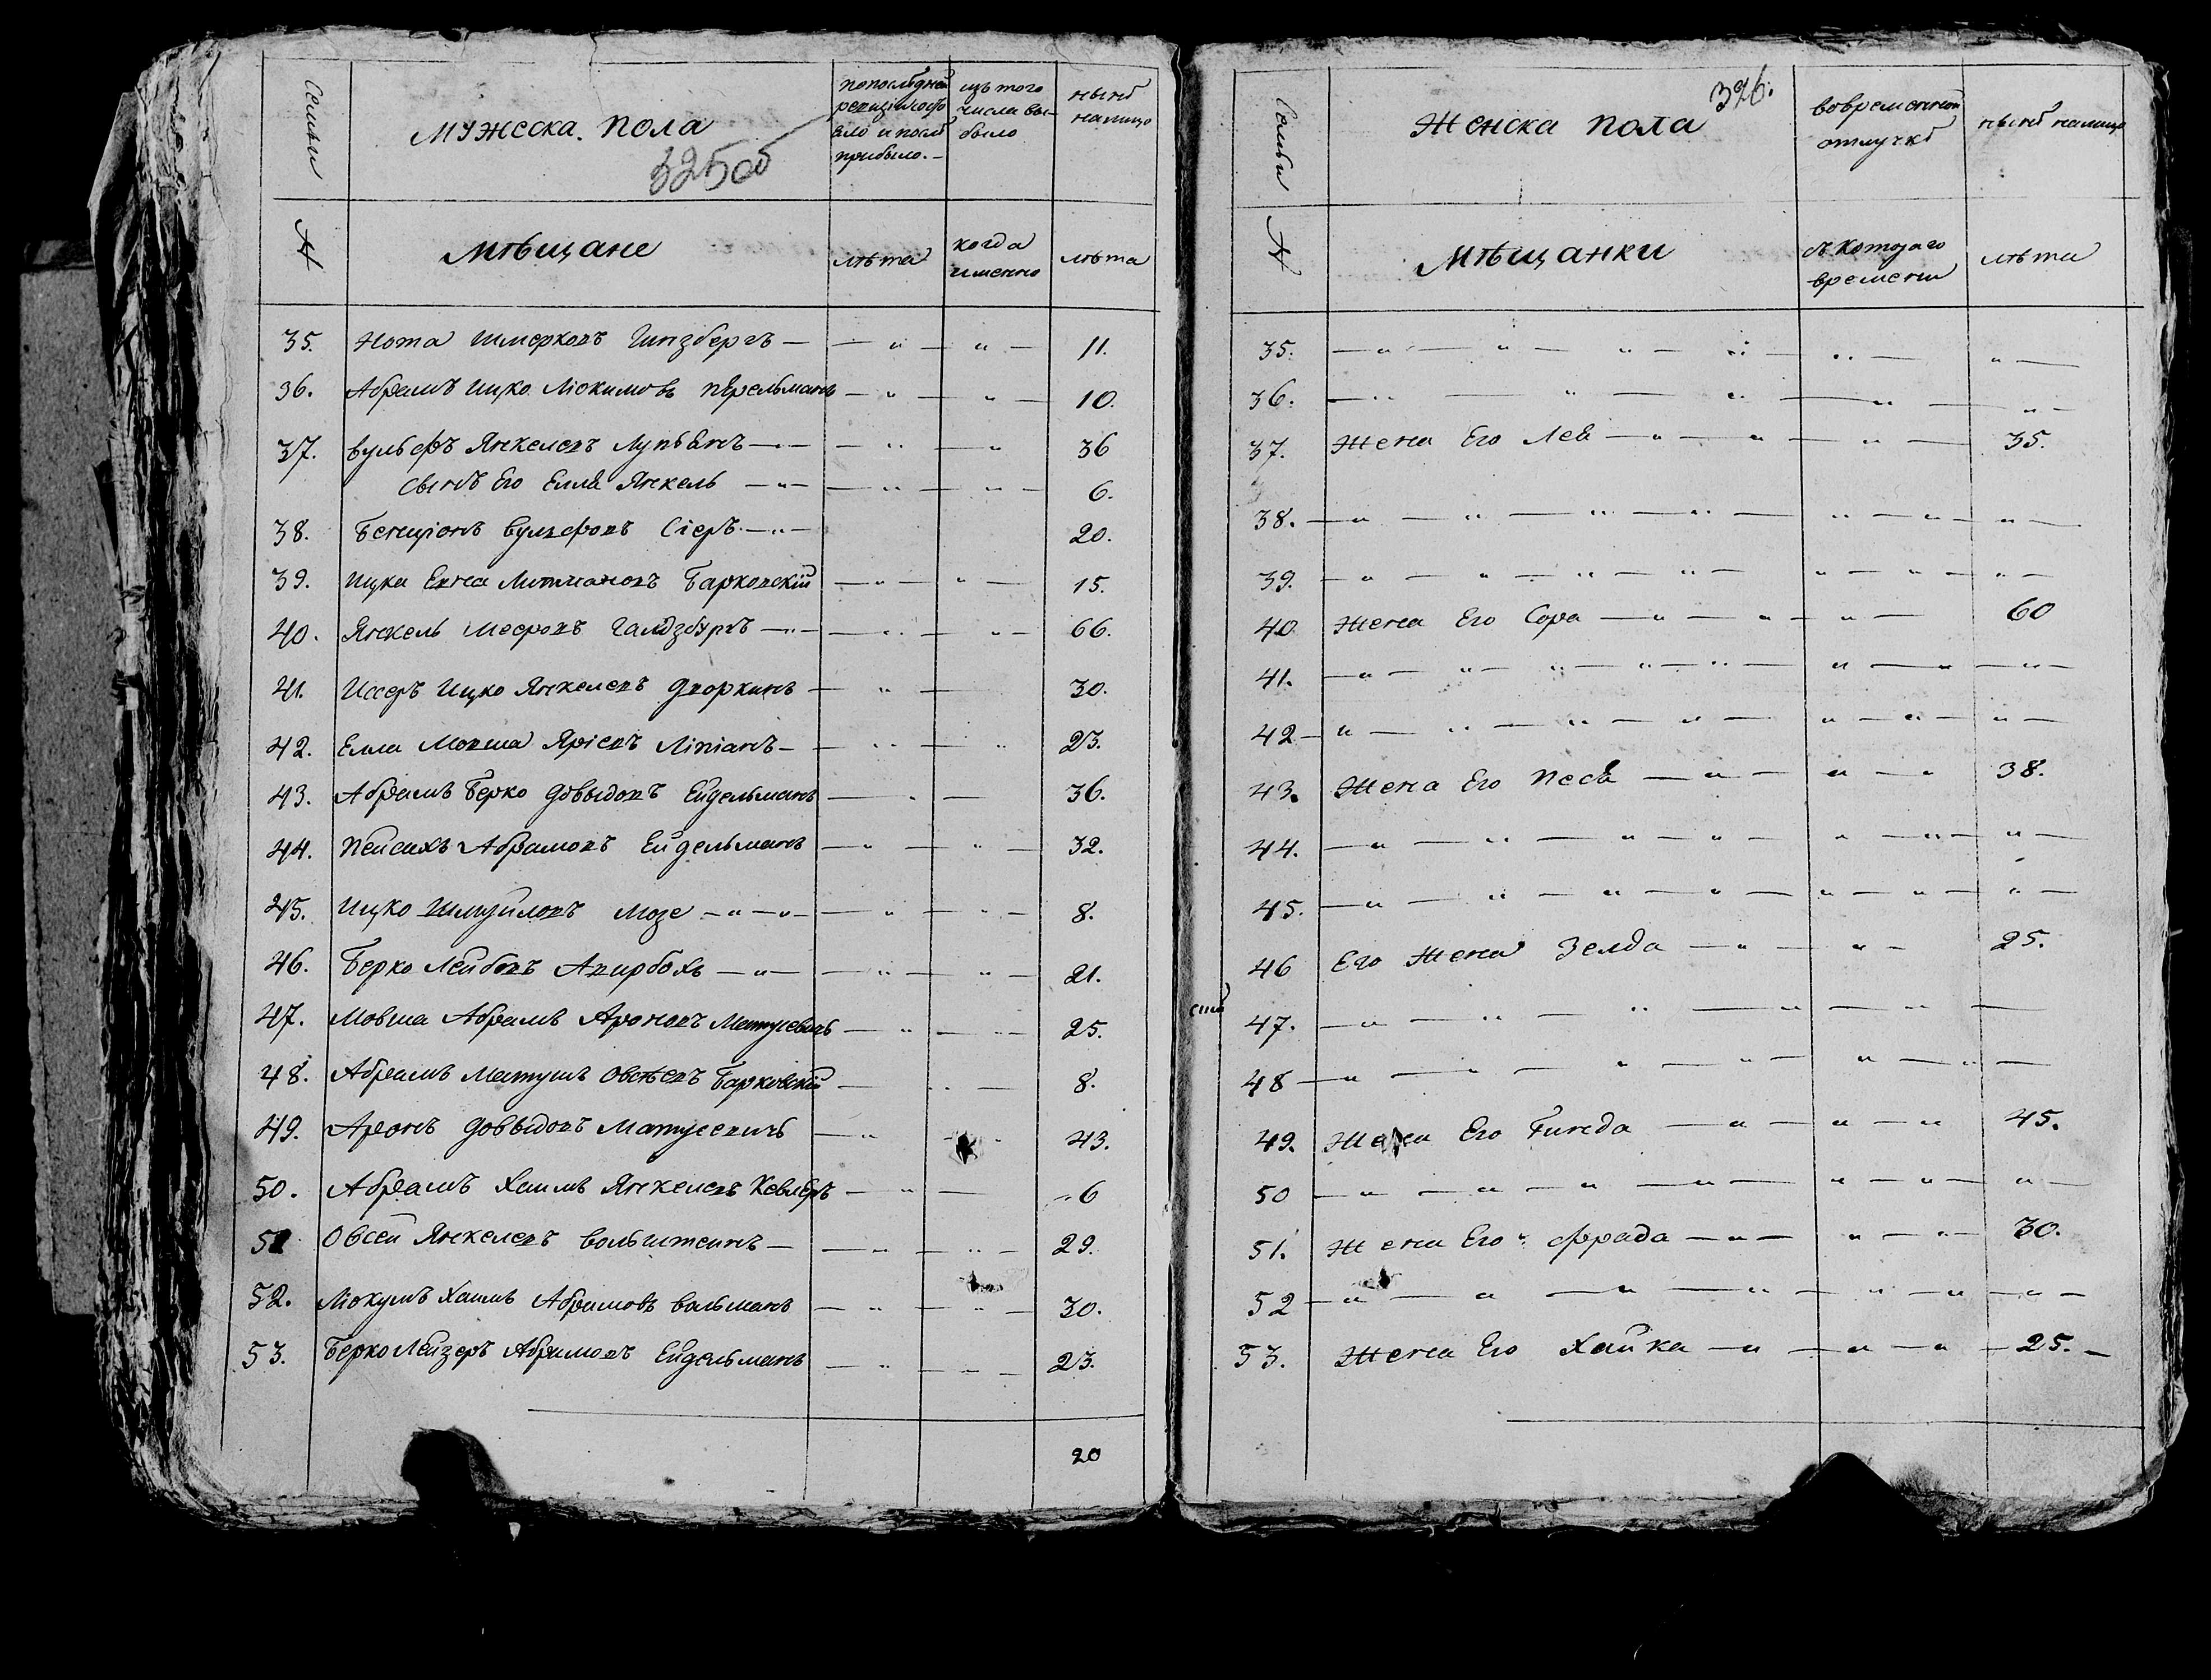 Семьи
мужеска пола
325об
по последней
ревизіи состо
яло и послѣ
прибыло.
изъ того
числа вы
было
нынѣ
налицо
№
мѣщане
лѣта
когда
именно
лѣта
35. Нота Шмерковъ Гинзбергъ — — " — " — 11.
36. Абрамъ Ицко Мокимовъ Перельманъ — " — " — 10.
37. Вульфъ Янкелевъ — " — — " — " 36
Сынъ Его Елля Янкель — " — — " — " — 6.
38. Бенціонъ Вульфовъ — " — 20.
39. Ицка Литмановъ Барковскій — " — " — 15.
40. Янкель Мееровъ — " — — " — " — 66.
41. Иссеръ Ицко Янкелевъ Дворкинъ — " — 30.
42. Елля Мовша — — " — " 23.
43. Абрамъ Берко Довыдовъ Ейдельманъ — " — 36.
44. Пейсахъ Абрамовъ Ейдельманъ — " — " — 32.
45. Ицко Шмуйловъ Мозе — " — " — — " — " — 8.
46. Берко Лейбовъ — " — — " — " — 21.
47. Мовша Абрамъ Ароновъ Матусевичъ — " — " — 25.
48. Абрамъ Матушъ Овсѣевъ Барковскій — " — 8.
49. Аронъ Довыдовъ Матусевичъ — " — " 43.
50. Абрамъ Хаимъ Янкелевъ — " — 6
51 Овсей Янкелевъ Вольштейнъ — — " — " — 29.
52. Хаимъ Абрамовъ Вальманъ — " — " — 30.
53. Берко Лейзеръ Абрамовъ Ейдельманъ — " — — 23.
20
Семьи
Женска пола
326.
во временной
отлучкѣ
нынѣ налицо
№
мѣщанки
съ котораго
времени
лѣта
35. — " — " — " — " — " — " —
36. — " — " — " — " — " —
37. Жена Его Лея — " — " — " — 35.
38. — " — " — " — " — " — " — " —
39. — " — " — " — " — " — " — " —
40. Жена Его Сора — " — " — " — 60
41. — " — " — " — " — " — " — " — " —
42 — " — " — " — " — " — " — " —
43. Жена Его Песя — " — " — " 38.
44. — " — " — " — " — " — " — " —
45. — " — " — " — " — " — " — " —
46 Его Жена Зелда — " — " — 25.
47. — " — " — " — " — — —
48 — " — " — " — " — " — " —
49. Жена Его — " — " — " 45.
50 — " — " — " — " — " — " — " —
51. Жена Его Фрада — " — " — " — 30.
52 — " — " — " — " — " — " — " —
53. Жена Его Хайка — " — " — " — 25. —